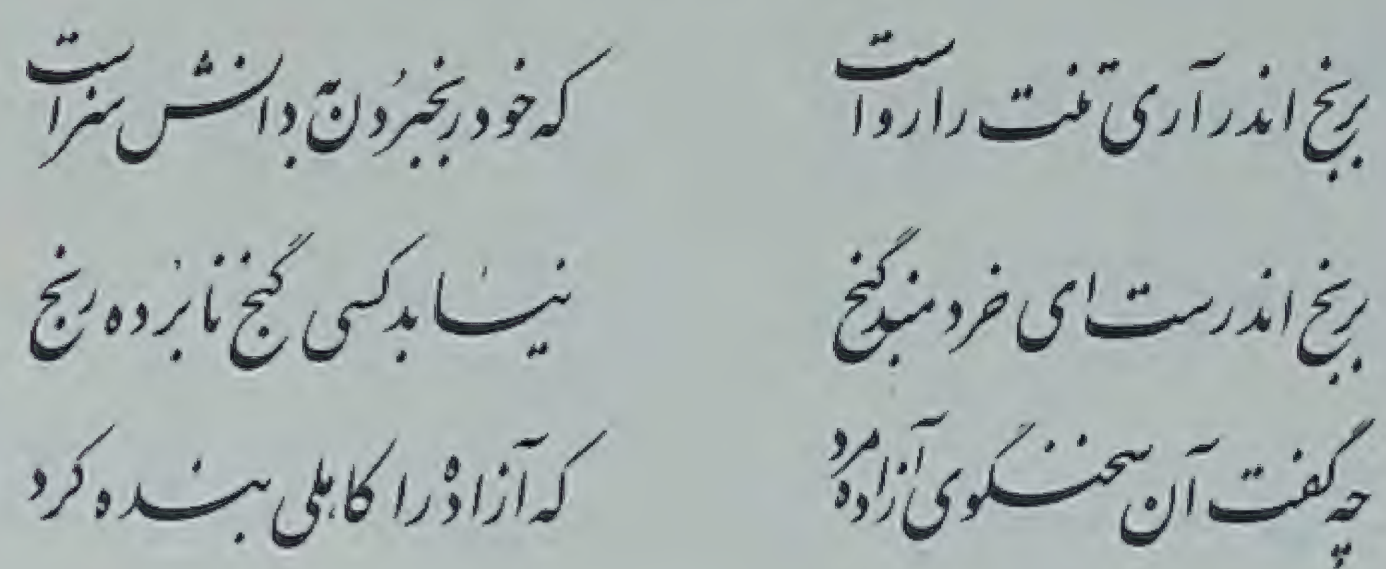 برنج اندر آری تنت را رواست که خود رنج بردن بدانش سزاست
برنج اندرست ای خردمند گنج نیابد کسی گنج نابرده رنج
چه گفت آن سخنگوی آزاده مرد که آزاده را کاهلی بنده کرد